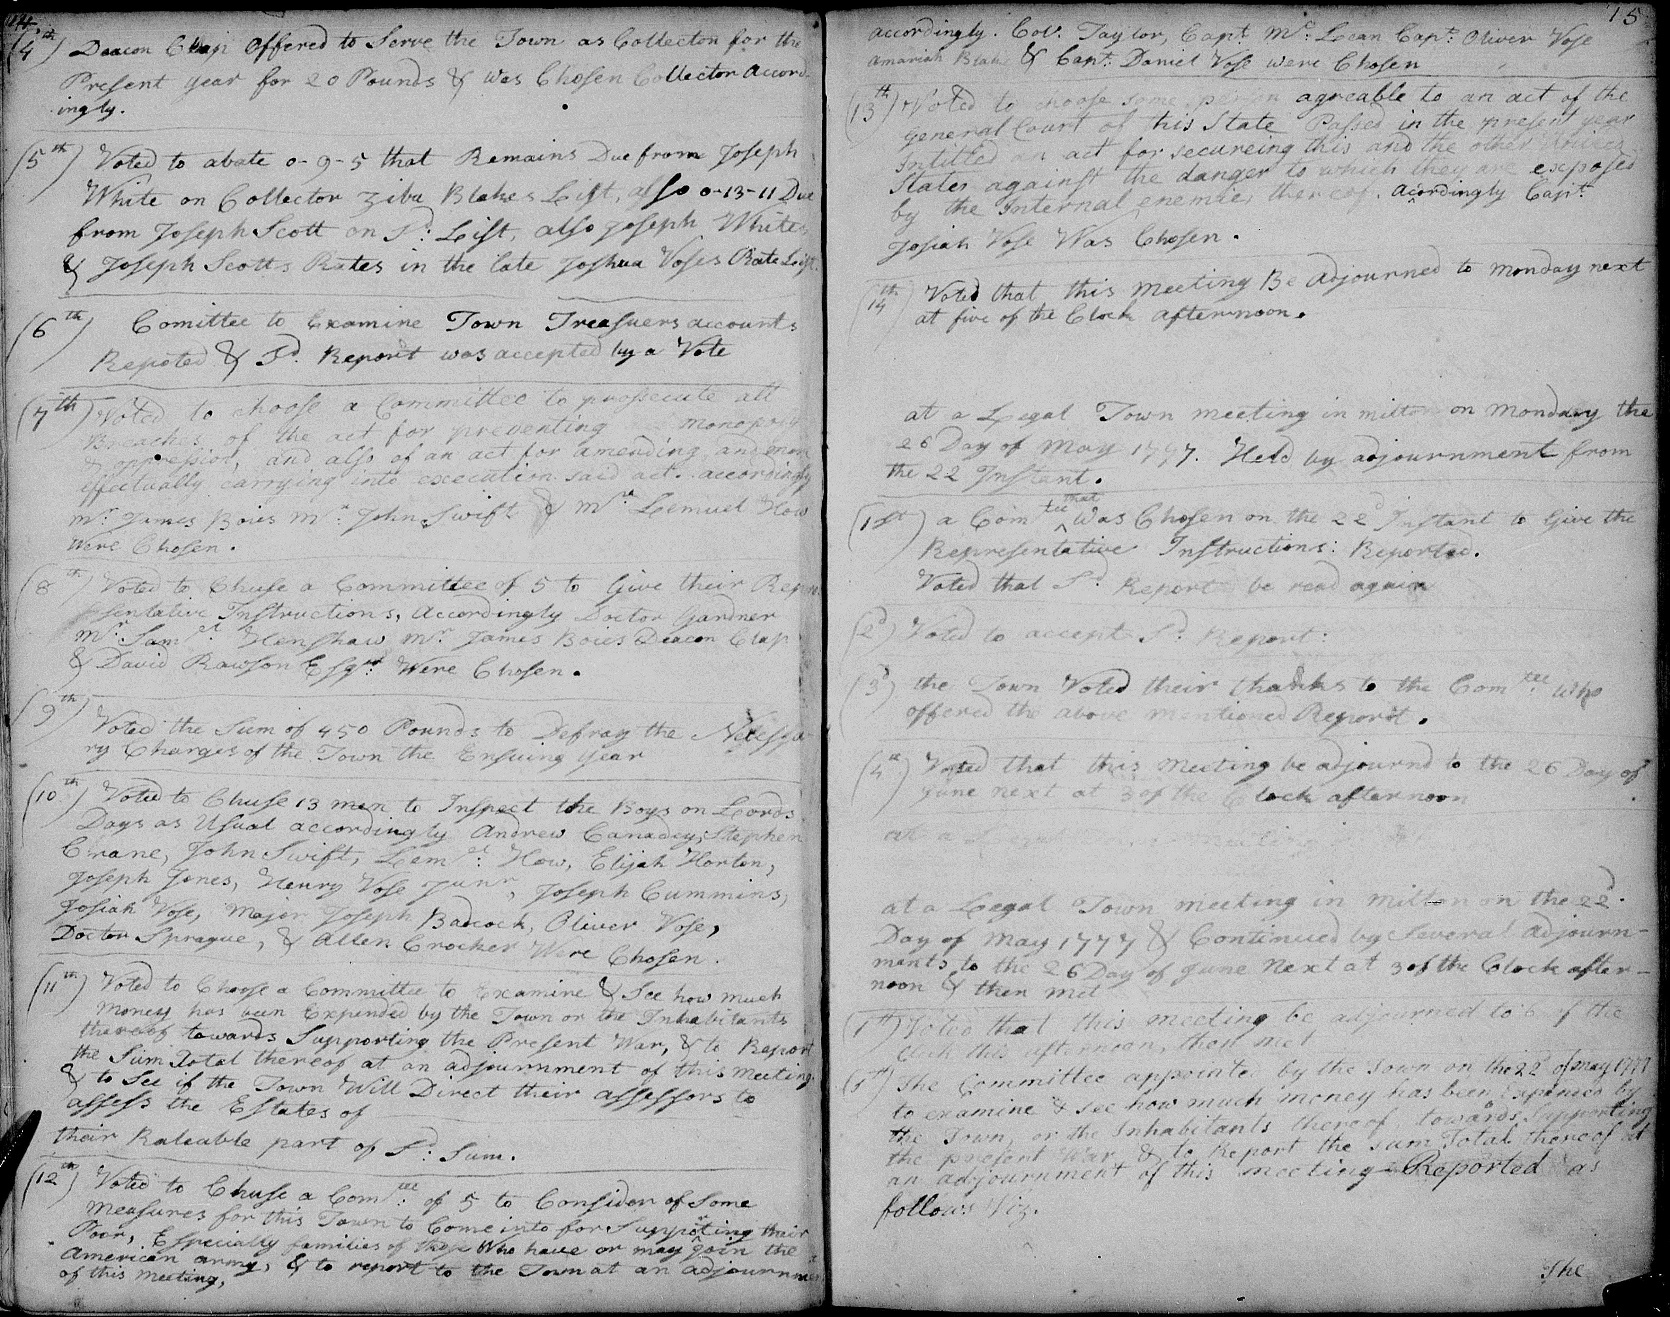 14
(4th) Deacon Clap Offered to Serve the Town as Collector for the
Present year for 20 Pounds & was Chosen Collector Accord-
ingly.
(5th) Voted to abate 0-9-5 that Remains Due from Joseph
White on Collector Ziba Blakes List, also 0-13-11 Due
from Joseph Scott on Sd: List, also Joseph Whites
& Joseph Scotts Rates in the late Joshua Voses Rate List.
(6th) Comittee to Examine Town Treasuers accounts
Repoted & Sd. Report was accepted by a Vote
(7th) Voted to choose a Committee to prosecute all
Breaches of the act for preventing monopoly
& oppression, and also of an act for amending, and more
effectually carrying into execution said act. accordingly
Mr. James Boies Mr. John Swift & Mr. Lemuel How
Were Chosen.
(8th) Voted to Chuse a Committee of 5 to Give their Repre-
sentative Instructions, Accordingly Doctor Gardner
Mr. Samel Henshaw Mr. James Boies Deacon Clap
& David Rawson Esqr. Were Chosen.
(9th) Voted the Sum of 450 Pounds to Defray the Necessa-
ry Charges of the Town the Ensuing year
(10th) Voted to Chuse 13 men to Inspect the Boys on Lords
Days as Usual accordingly Andrew Canadey, Stephen
Crane, John Swift, Lemel: How, Elijah Horton,
Joseph Jones, Henry Vose Junr, Joseph Cummins,
Josiah Vose, Major Joseph Badcock, Oliver Vose,
Doctor Sprague, & Allen Crocker Were Chosen.
(11th) Voted to Choose a Committee to Examine & See how much
money has been Expended by the Town or the Inhabitants
thereof towards Supporting the Present War, & to Report
the Sum Total thereof at an adjournment of this meeting
& to See if the Town Will Direct their assessors to
assess the Estates of
their Rateable part of Sd: Sum.
(12th) Voted to Chuse a Comtee of 5 to Consider of Some
measures for this Town to Come into for Suppoting their
Poor, Especially families of those Who have or may join the
American army, & to report to the Town at an adjournment
of this meeting,
15
accordingly. Col. Taylor, Capt. Mc.Lean Capt. Oliver Vose
Amariah Blake & Capt. Daniel Vose were Chosen
(13th) Voted to choose some person agreable to an act of the
General Court of this State Passed in the present year
Intitled an act for secureing this and the other United
States against the danger to which they are exposed
by the Internal enemies thereof. acordingly Capt.
Josiah Vose Was Chosen.
(14th) Voted that this meeting Be Adjourned to monday next
at five of the Clock afternoon.
at a Legal Town meeting in milton on monday the
26 Day of May 1777. Held by adjournment from
the 22 Instant.
(1st) a Comtee that Was Chosen on the 22d Instant to Give the
Representative Instructions: Reported.
Voted that Sd. Report be read again
(2d) Voted to accept Sd. Report:
(3d) the Town Voted their thanks to the Comtee who
offered the above mentioned Report.
(4th) Voted that this meeting be adjournd to the 26 Day of
June next at 3 of the Clock afternoon
at a Legal
at a Legal Town meeting in milton on the 22d.
Day of May 1777 & Continued by Several adjourn-
ments to the 26 Day of June Next at 3 of the Clock after-
noon & then met
(1st) Voted that this meeting be adjourned to 6 of the
Clock this afternoon, then met
(1st) The Committee appointed by the Town on the 22d of May 1777
to examine & see how much money has been Expended by
the Town, or the Inhabitants thereof, towards Supporting
the present War & to Report the sum Total thereof at
an adjournment of this meeting Reported as
follows Viz.
The